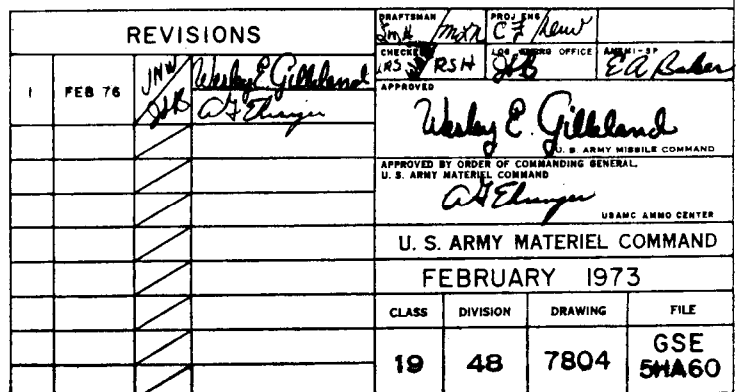 REVISIONS
1 FEB 76 JNW Wesley E. Gilleland
JHB
DRAFTSMAN PROJ ENG
CHECKER LOG ENGRG OFFICE AMXMI-SP
RSH JHB E A Baker
APPROVED
Wesley E. Gilleland
U. S. ARMY MISSILE COMMAND
APPROVED BY ORDER OF COMMANDING GENERAL,
U. S. ARMY MATERIEL COMMAND
USAMC AMMO CENTER
U. S. ARMY MATERIEL COMMAND
FEBRUARY 1973
CLASS DIVISION DRAWING FILE
19 48 7804 GSE
5HA60